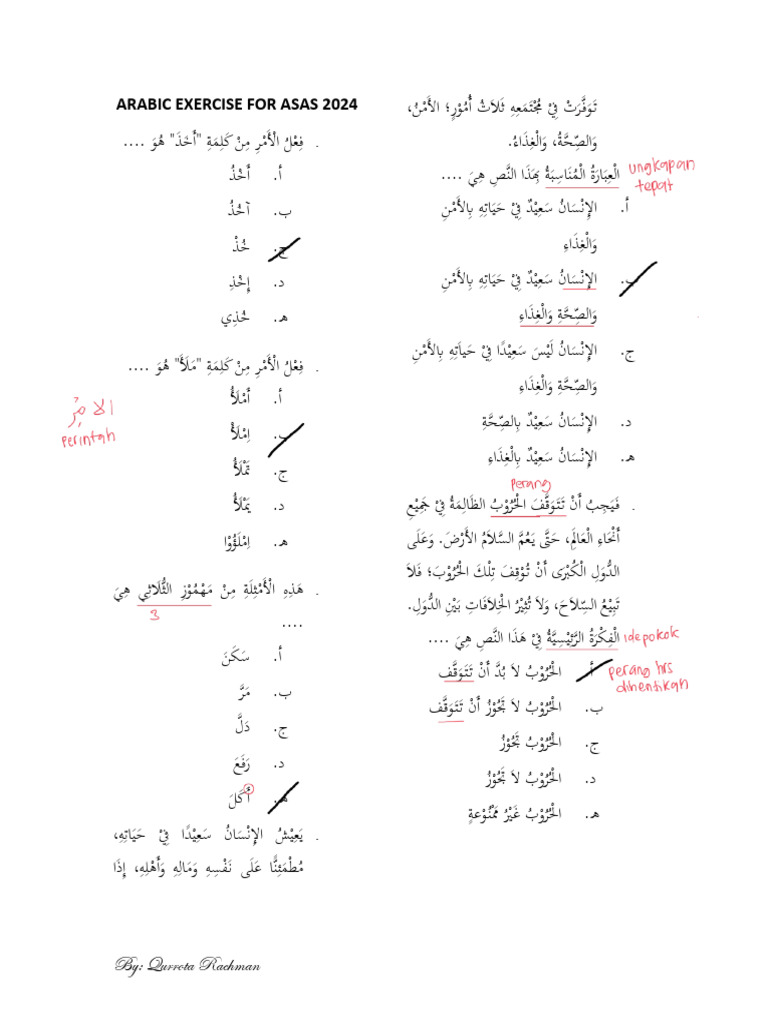 ARABIC EXERCISE FOR ASAS 2024
. فِعْلُ الْأَمْرِ مِنْ كَلِمَةِ "أَخَذَ" هُوَ ....
أ. أَخْذُ
ب. آخُذُ
ج. خُذْ
د. إِخْذِ
هـ. خُذِي
. فِعْلُ الْأَمْرِ مِنْ كَلِمَةِ "مَلَأَ" هُوَ ....
أ. أَمْلَأُ
ب. اِمْلَأْ
ج. تَمْلَأُ
د. يَمْلَأُ
هـ. اِمْلَؤُوْا
الامر
perintah
. هَذِهِ الْأَمْثِلَةِ مِنْ مَهْمُوْزِ الثُّلَاثِي هِيَ
3
....
أ. سَكَنَ
ب. مَرَّ
ج. دَلَّ
د. رَفَعَ
هـ. أَكَلَ
. يَعِيْشُ الإِنْسَانُ سَعِيْدًا فِيْ حَيَاتِهِ،
مُطْمَئِنًّا عَلَى نَفْسِهِ وَمَالِهِ وَأَهْلِهِ، إِذَا
تَوَفَّرَتْ فِيْ مُجْتَمَعِهِ ثَلَاثُ أُمُوْرٍ؛ الأَمْنُ،
وَالصِّحَّةُ، وَالْغِذَاءُ.
الْعِبَارَةُ الْمُنَاسِبَةُ بِهَذَا النَّصِ هِيَ ....
ungkapan
tepat
أ. الإِنْسَانُ سَعِيْدٌ فِيْ حَيَاتِهِ بِالأَمْنِ
وَالْغِذَاءِ
ب. الإِنْسَانُ سَعِيْدٌ فِيْ حَيَاتِهِ بِالأَمْنِ
وَالصِّحَّةِ وَالْغِذَاءِ
ج. الإِنْسَانُ لَيْسَ سَعِيْدًا فِيْ حَيَاتِهِ بِالأَمْنِ
وَالصِّحَّةِ وَالْغِذَاءِ
د. الإِنْسَانُ سَعِيْدٌ بِالصِّحَّةِ
هـ. الإِنْسَانُ سَعِيْدٌ بِالْغِذَاءِ
perang
. فَيَجِبُ أَنْ تَتَوَقَّفَ الْحُرُوْبُ الظَالِمَةُ فِيْ جَمِيْعِ
أَنْحَاءِ الْعَالَمِ، حَتَّى يَعُمَّ السَّلَامُ الأَرْضَ. وَعَلَى
الدُّوَلِ الْكُبْرَى أَنْ تُوْقِفَ تِلْكَ الْحُرُوْبَ؛ فَلَا
تَبِيْعُ السِّلَاحَ، وَلَا تُثِيْرُ الْخِلَافَاتِ بَيْنِ الدُّوَلِ.
الْفِكْرَةُ الرَّئِيْسِيَّةُ فِيْ هَذَا النَّصِ هِيَ ....
idepokok
أ. الْحُرُوْبُ لَا بُدَّ أَنْ تَتَوَقَّف
perang hrs
dihentikan
ب. الْحُرُوْبُ لَا تَجُوْزُ أَنْ تَتَوَقَّف
ج. الْحُرُوْبُ تَجُوْزُ
د. الْحُرُوْبُ لَا تَجُوْزُ
هـ. الْحُرُوْبُ غَيْرُ مَمْنُوْعَةٍ
By: Qurrota Rachman